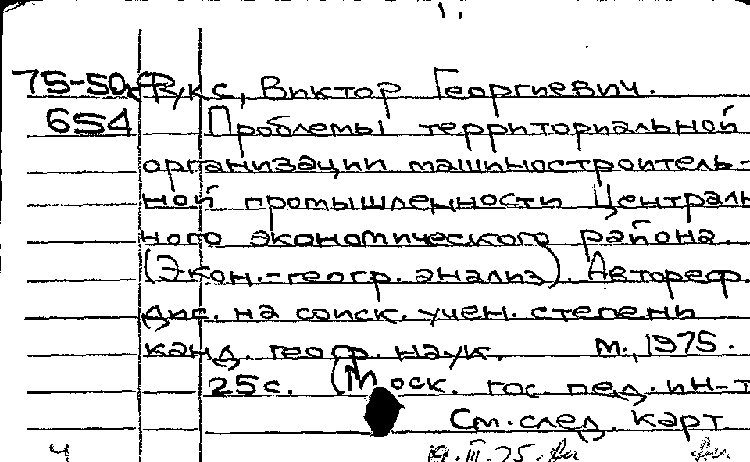 75-50 Фукс, Виктор Георгиевич.
654 Проблемы территориальной
организации машиностроитель-
ной промышленности Централь-
ного экономического района.
(Экон.-геогр. анализ). Автореф.
дис. на соиск. учен. степени
канд. геогр. наук. М., 1975.
25с. (Моск. гос. пед. ин-т
См. след. карт
4 19.III.75.